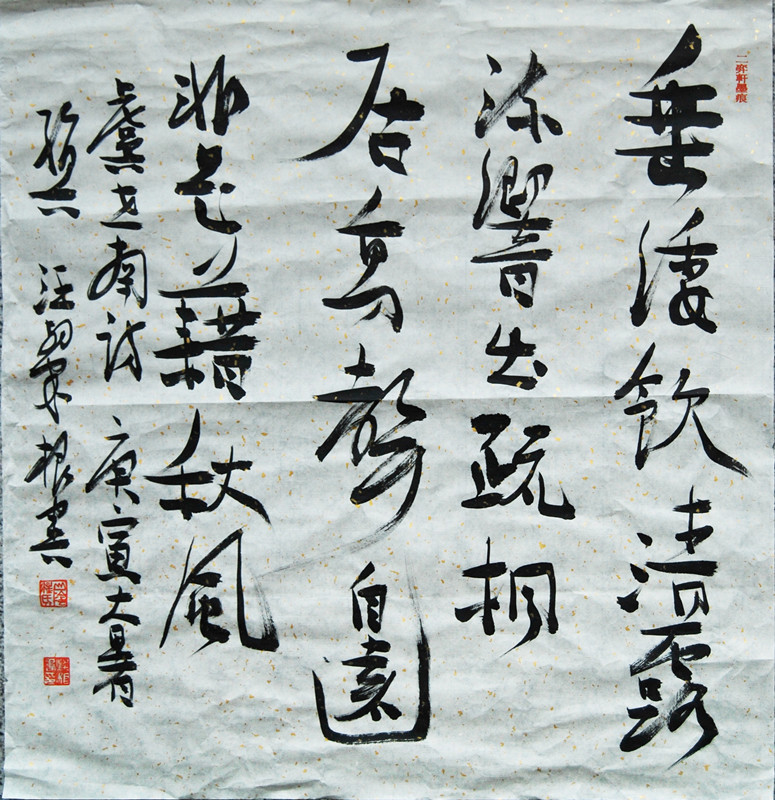 二弈軒墨痕
垂緌飲清露
流響出疏桐
居高聲自遠
非是藉秋風
虞世南詩 庚寅大暑
汪 根書